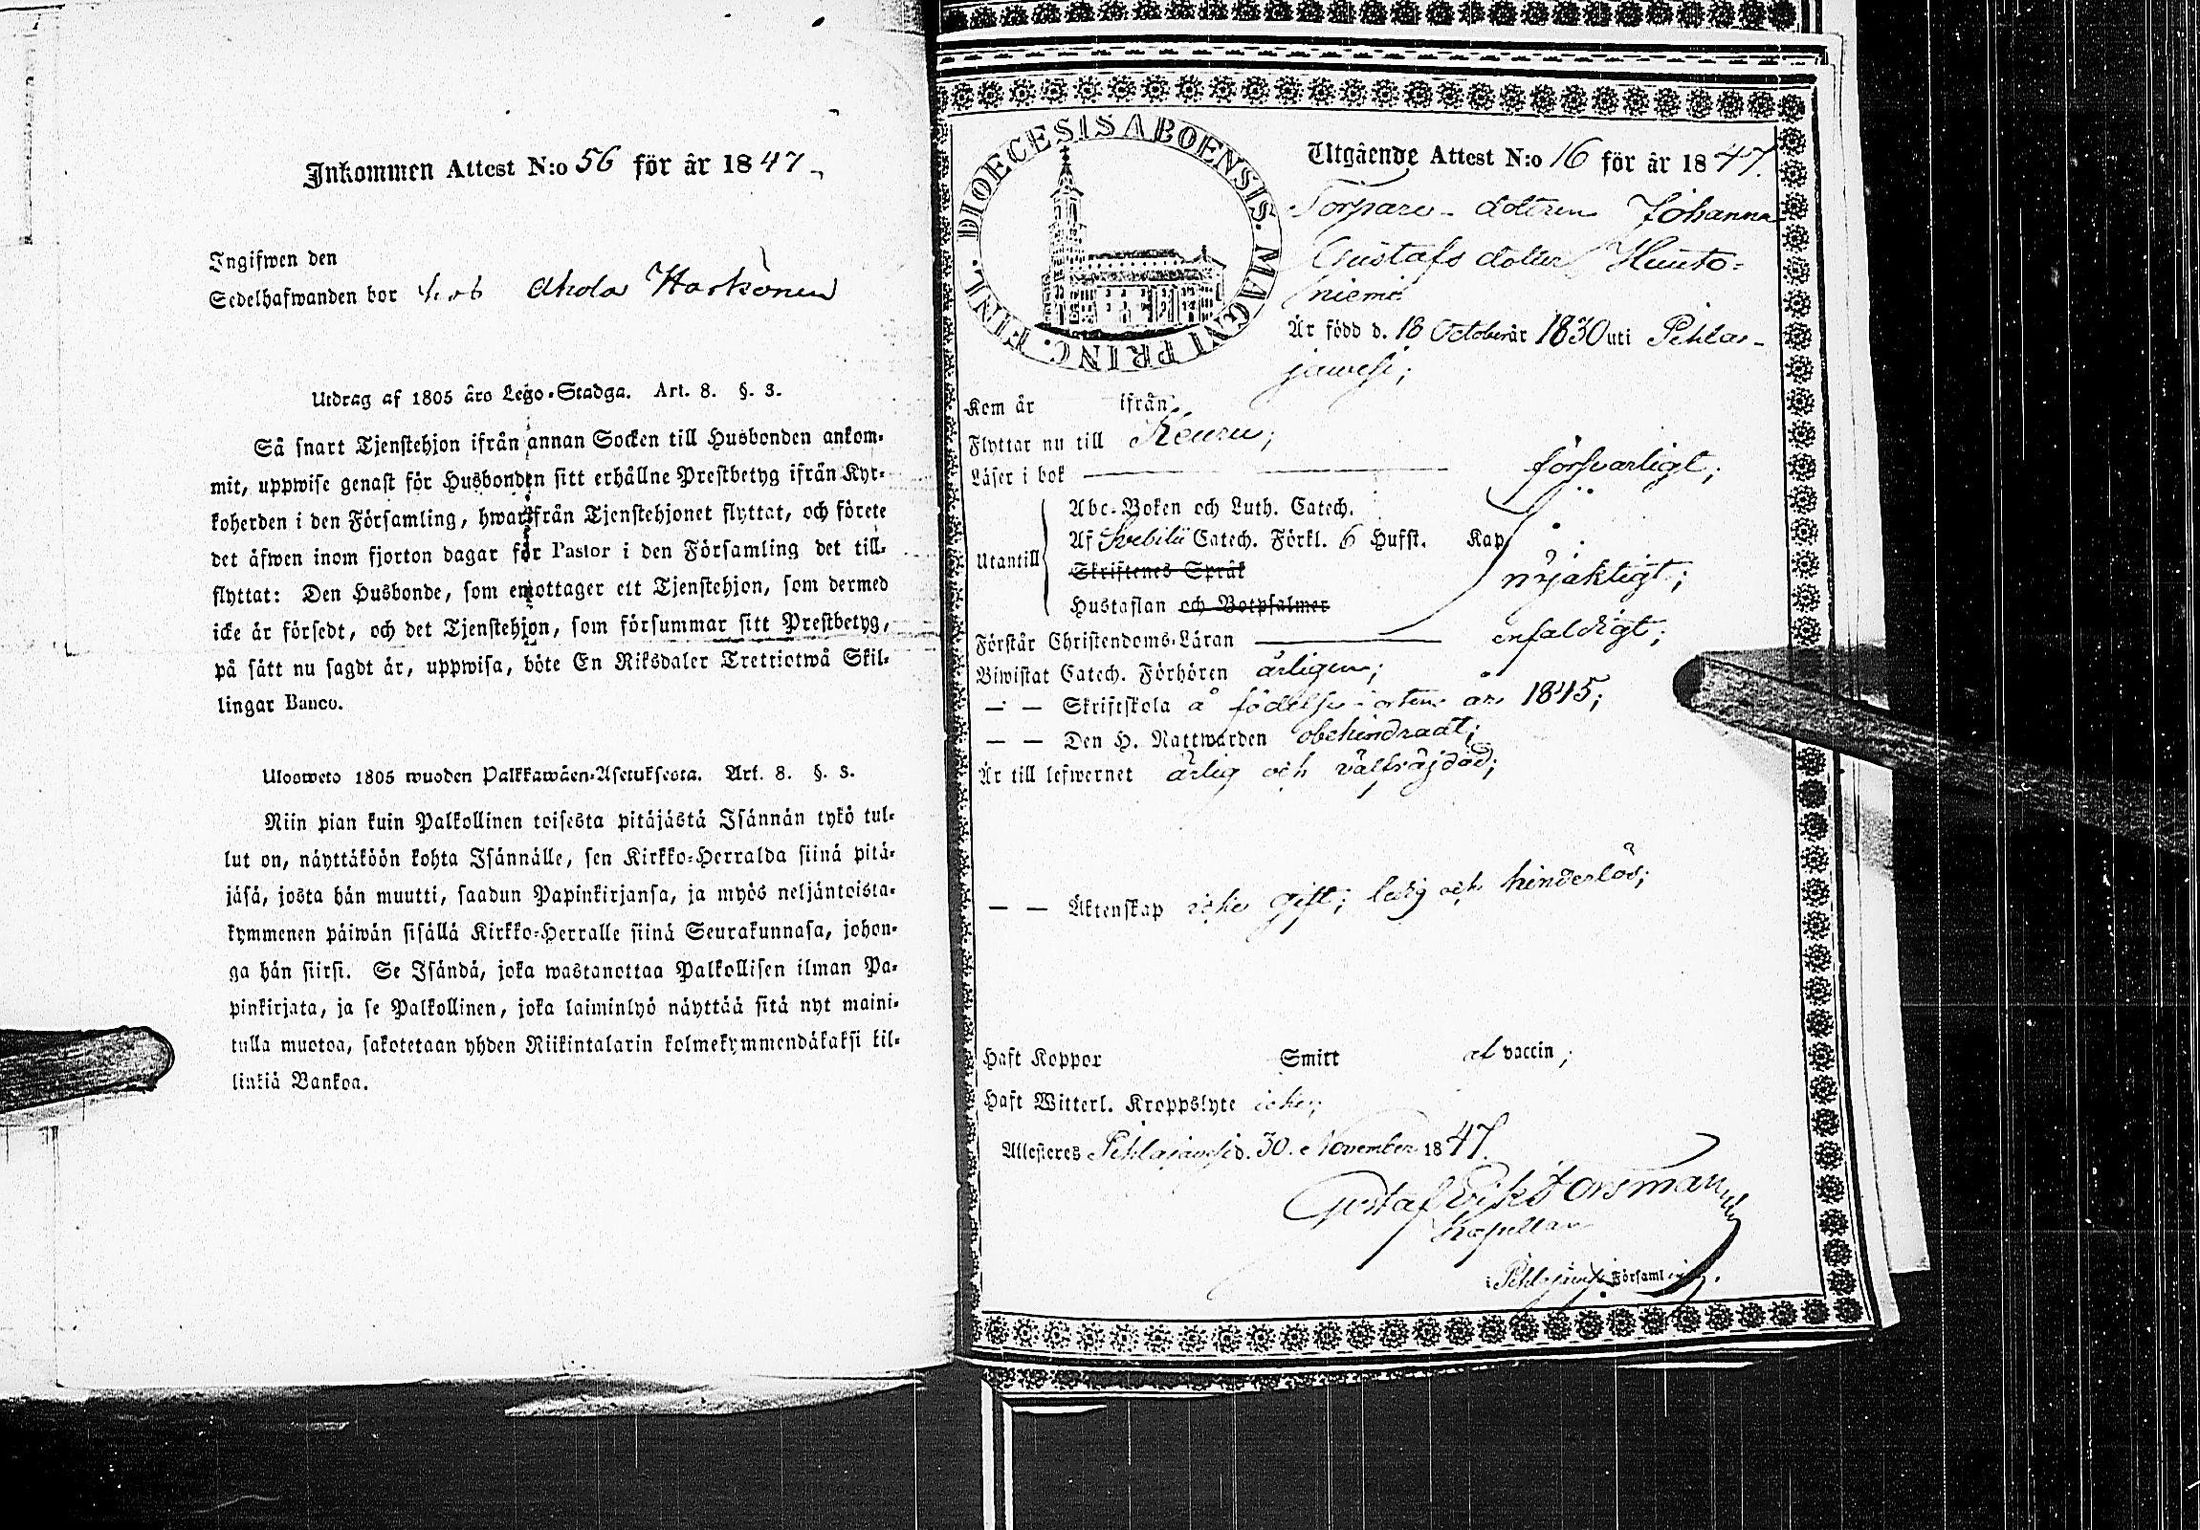 Inkommen Attest N:o 56 för år 1847
Ingifwen den
Sedelhafwanden bor hos Ahola Harkönen
Utdrag af 1805 års Lego-Stadga. Art. 8. §. 3.
Så snart Tjenstehjon ifrån annan Socken till Husbonden ankom-
mit, uppwise genast för Husbonden sitt erhållne Prestbetyg ifrån Kyr-
koherden i den Församling, hwarifrån Tjenstehjonet flyttat, och förete
det äfwen inom fjorton dagar för Pastor i den Församling det till-
flyttat: Den Husbonde, som emottager ett Tjenstehjon, som dermed
icke är försedt, och det Tjenstehjon, som försummar sitt Prestbetyg,
på sätt nu sagdt är, uppwisa, böte En Riksdaler Trettiotwå Skil-
lingar Banco.
Ulosweto 1805 wuoden Palkkawäen-Asetuksesta. Art. 8. §. 3.
Niin pian kuin Palkollinen toisesta pitäjästä Isännän tykö tul-
lut on, näyttäköön kohta Isännälle, sen Kirkko-Herralda siinä pitä-
jäsä, josta hän muutti, saadun Papinkirjansa, ja myös neljäntoista-
kymmenen päiwän sisällä Kirkko-Herralle siinä Seurakunnasa, johon-
ga hän siirsi. Se Isändä, joka wastanottaa Palkollisen ilman Pa-
pinkirjata, ja se Palkollinen, joka laiminlyö näyttää sitä nyt maini-
tulla muotoa, sakotetaan yhden Riikintalarin kolmekymmendäkaksi kil-
linkiä Bankoa.
DIOECESIS ABOENSIS. MAGNI PRINC. FINL.
Utgående Attest N:o 16 för år 1847.
Torpare-dottren Johanna
Gustafsdotter Huuto-
niemi
Är född d. 18 October år 1830 uti Pihla-
jawesi;
Kom år ifrån
Flyttar nu till Keuru;
Läser i bok försvarligt;
Utantill
Abc-Boken och Luth. Catech.
Af Svebilii Catech. Förkl. 6 Hufst. Kap
Skriftenes Språk nöjaktigt;
Hustaflan och Botpsalmer
Förstår Christendoms-Läran enfaldigt;
Biwistat Catech. Förhören årligen;
— — Skriftskola å födelse-orten år 1845;
— — Den H. Nattwarden obehindradt;
Är till lefwernet ärlig och välfräjdad;
— — Äktenskap icke gift; ledig och hinderlös;
Haft Koppor Smitt af vaccin;
Haft Witterl. Kroppslyte icke;
Attesteres Pihlajawesi d. 30. November 1847.
Gustaf Erik Forsman
Kapellan
i Pihlajawesi Församling.